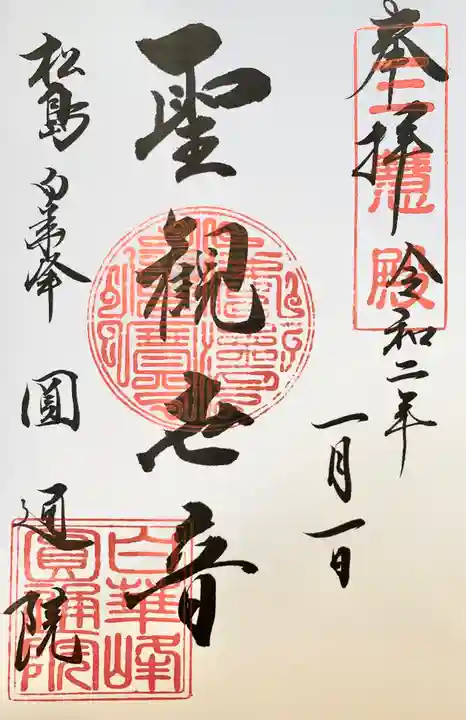 奉拝 令和二年
一月一日
三慧殿
聖観世音
松島 白華峰 圓通院
白華峰
圓通院